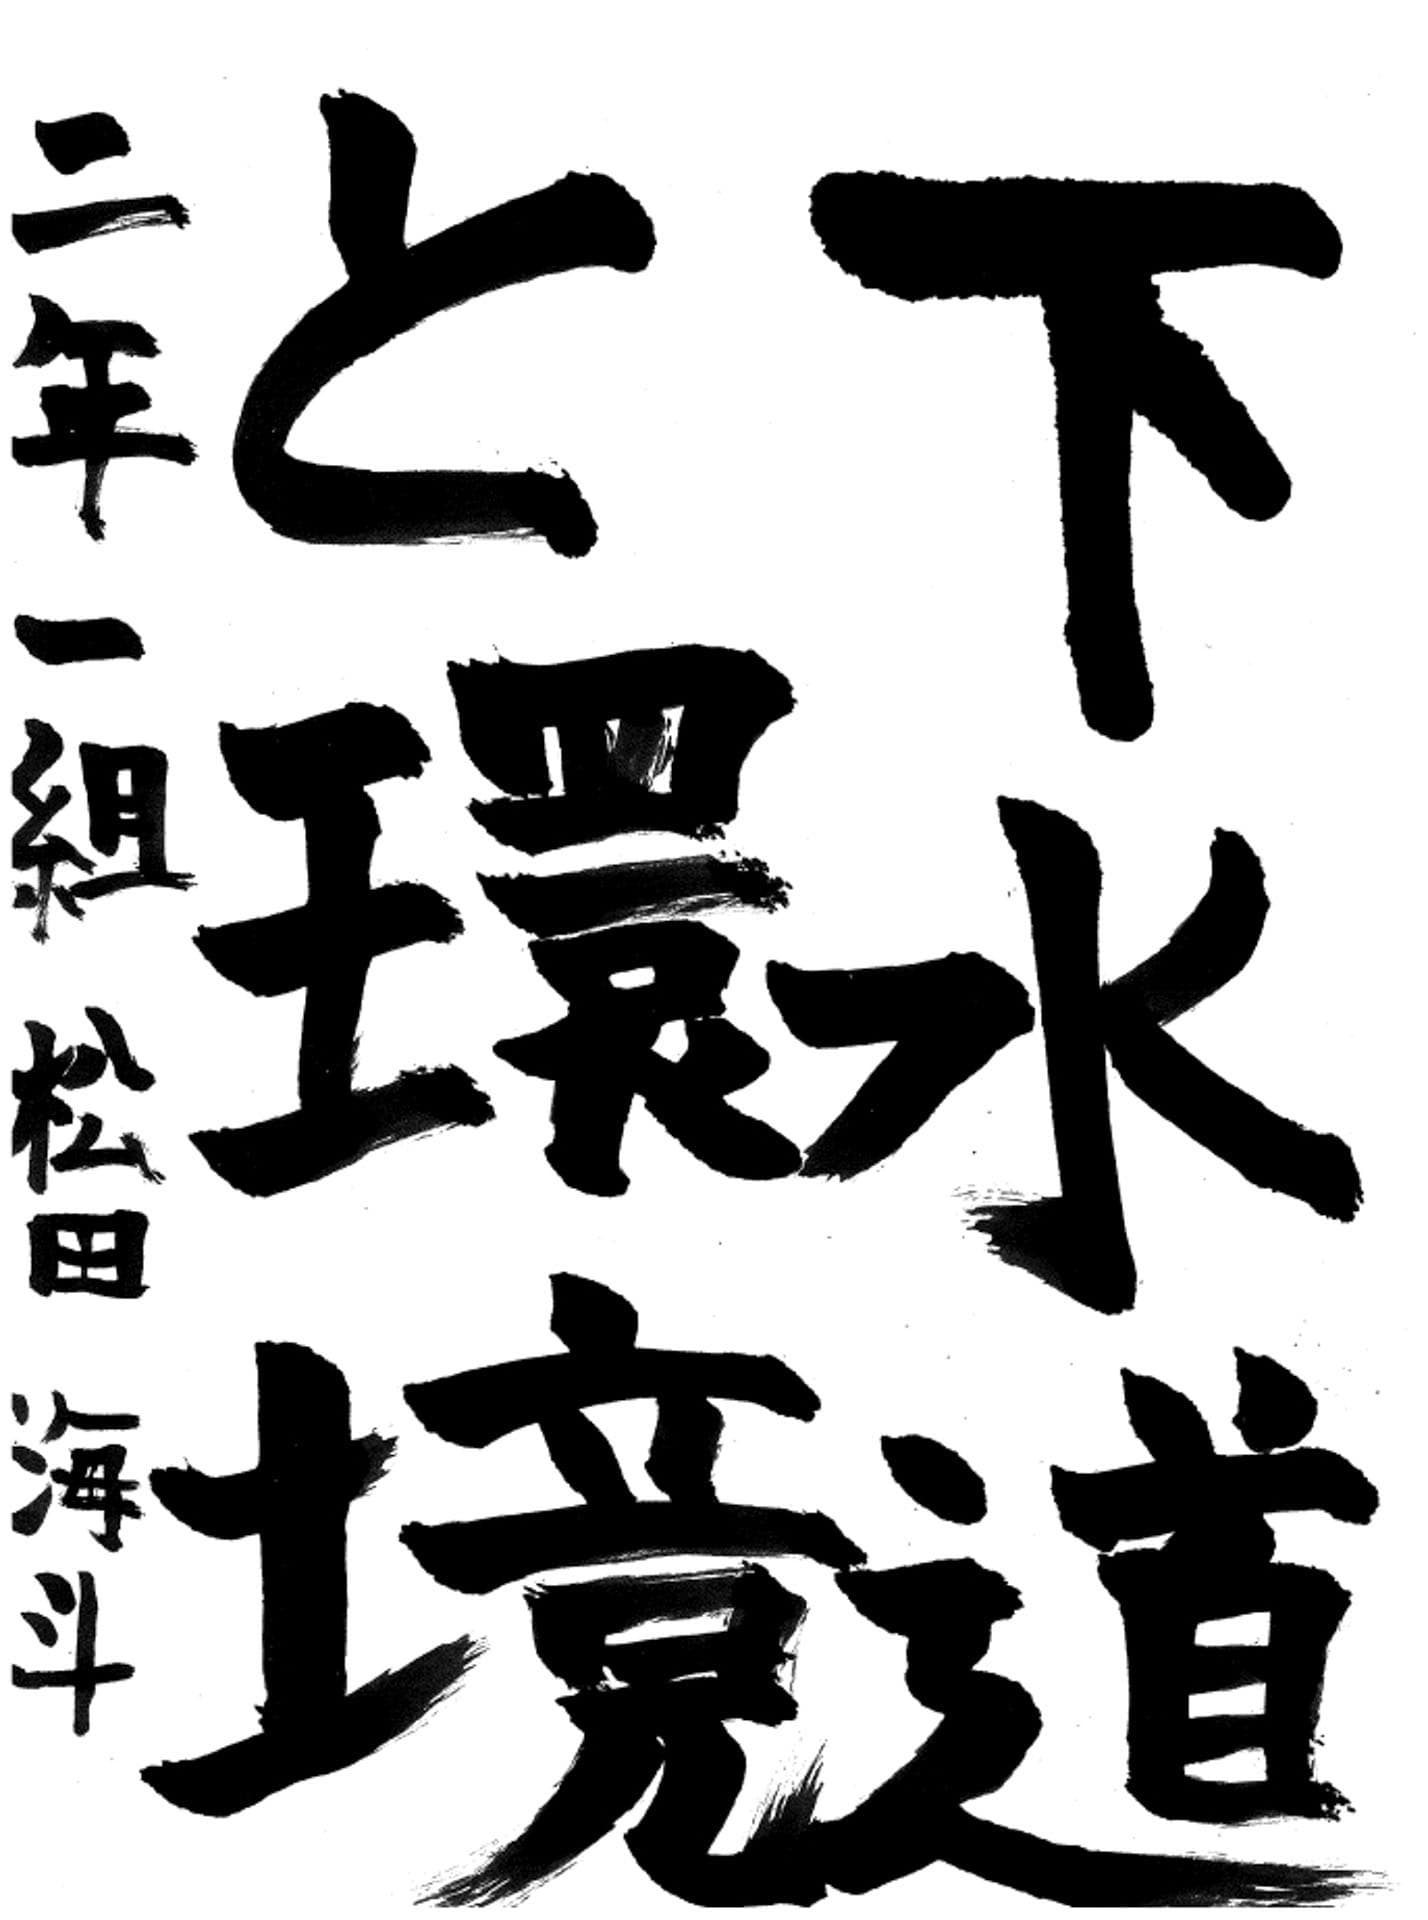 下水道
と環境
二年一組 松田 海斗